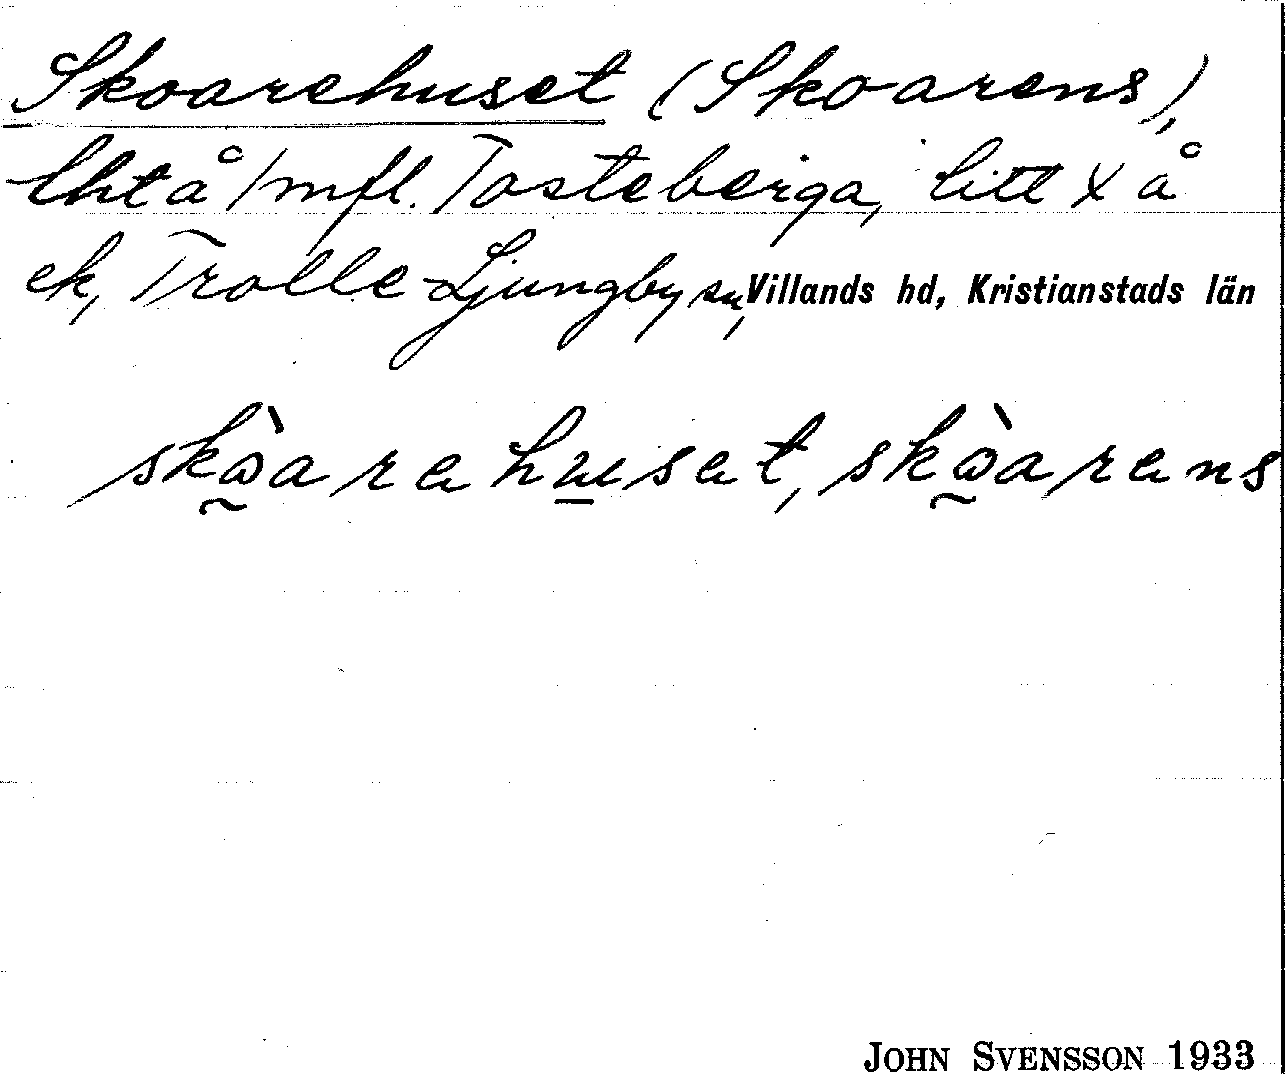 Skoarehuset (Skoarens),
lht å 1 mfl. Tosteberga, litt x å
ek, Trolle-Ljungby sn, Villands hd, Kristianstads län
skòarehuset, skòarens
JOHN SVENSSON 1933